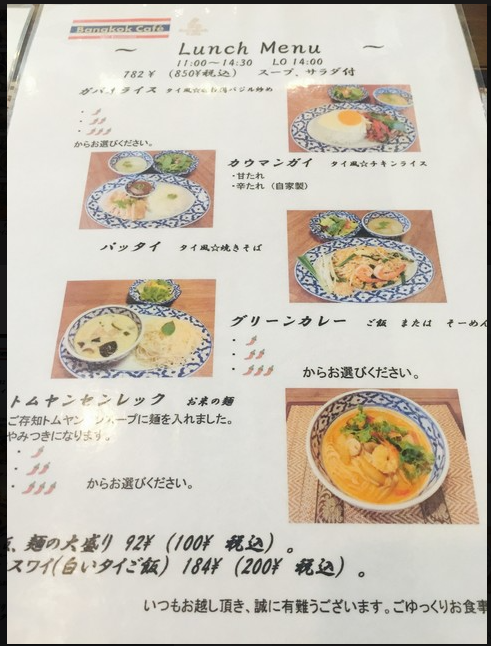 Bangkok Café
～ Lunch Menu ～
11:00～14:30 LO 14:00
782￥ (850￥税込) スープ、サラダ付
ガパオライス タイ風☆ バジル炒め
からお選びください。
カウマンガイ タイ風☆チキンライス
・甘たれ
・辛たれ (自家製)
パッタイ タイ風☆焼きそば
グリーンカレー ご飯 または そーめん
からお選びください。
トムヤンセンレック お米の麺
ご存知トムヤンクンスープに麺を入れました。
やみつきになります。
からお選びください。
、麺の大盛り 92￥ (100￥ 税込) 。
スワイ(白いタイご飯) 184￥ (200￥ 税込) 。
いつもお越し頂き、誠に有難うございます。ごゆっくりお食事